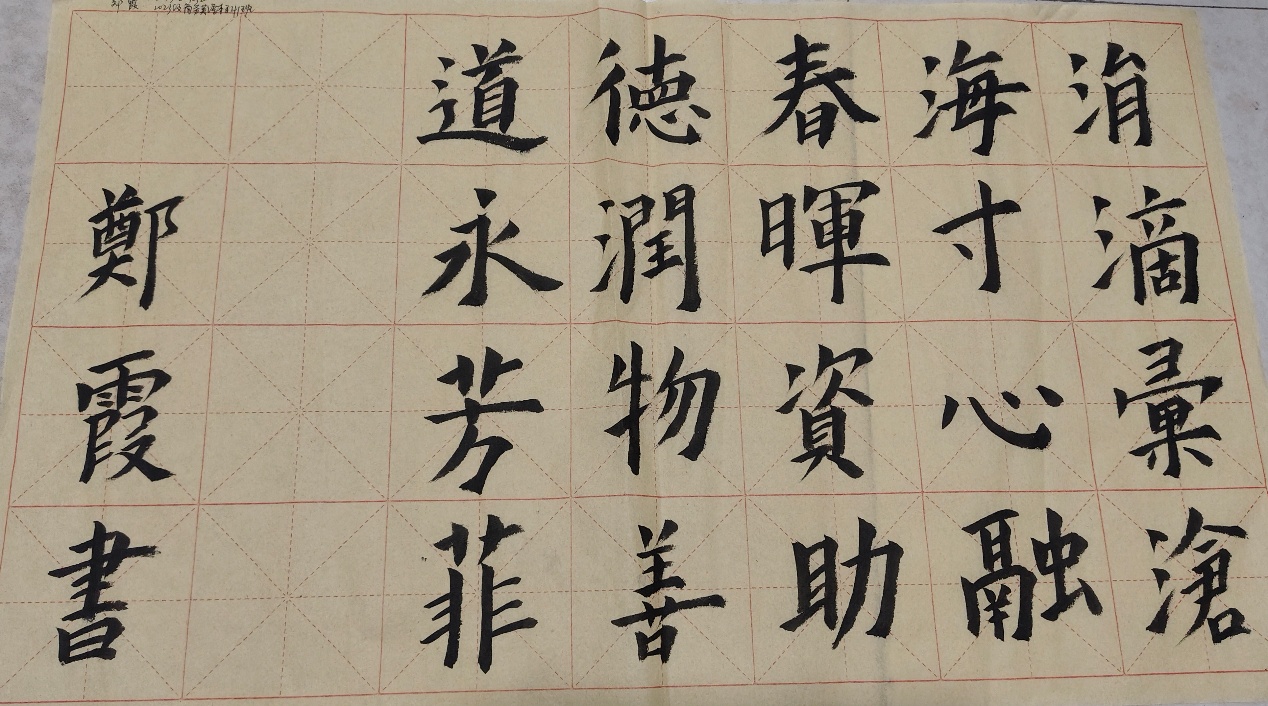 涓滴彙滄
海寸心融
春暉資助
德潤物善
道永芳菲
鄭霞書
鄭霞